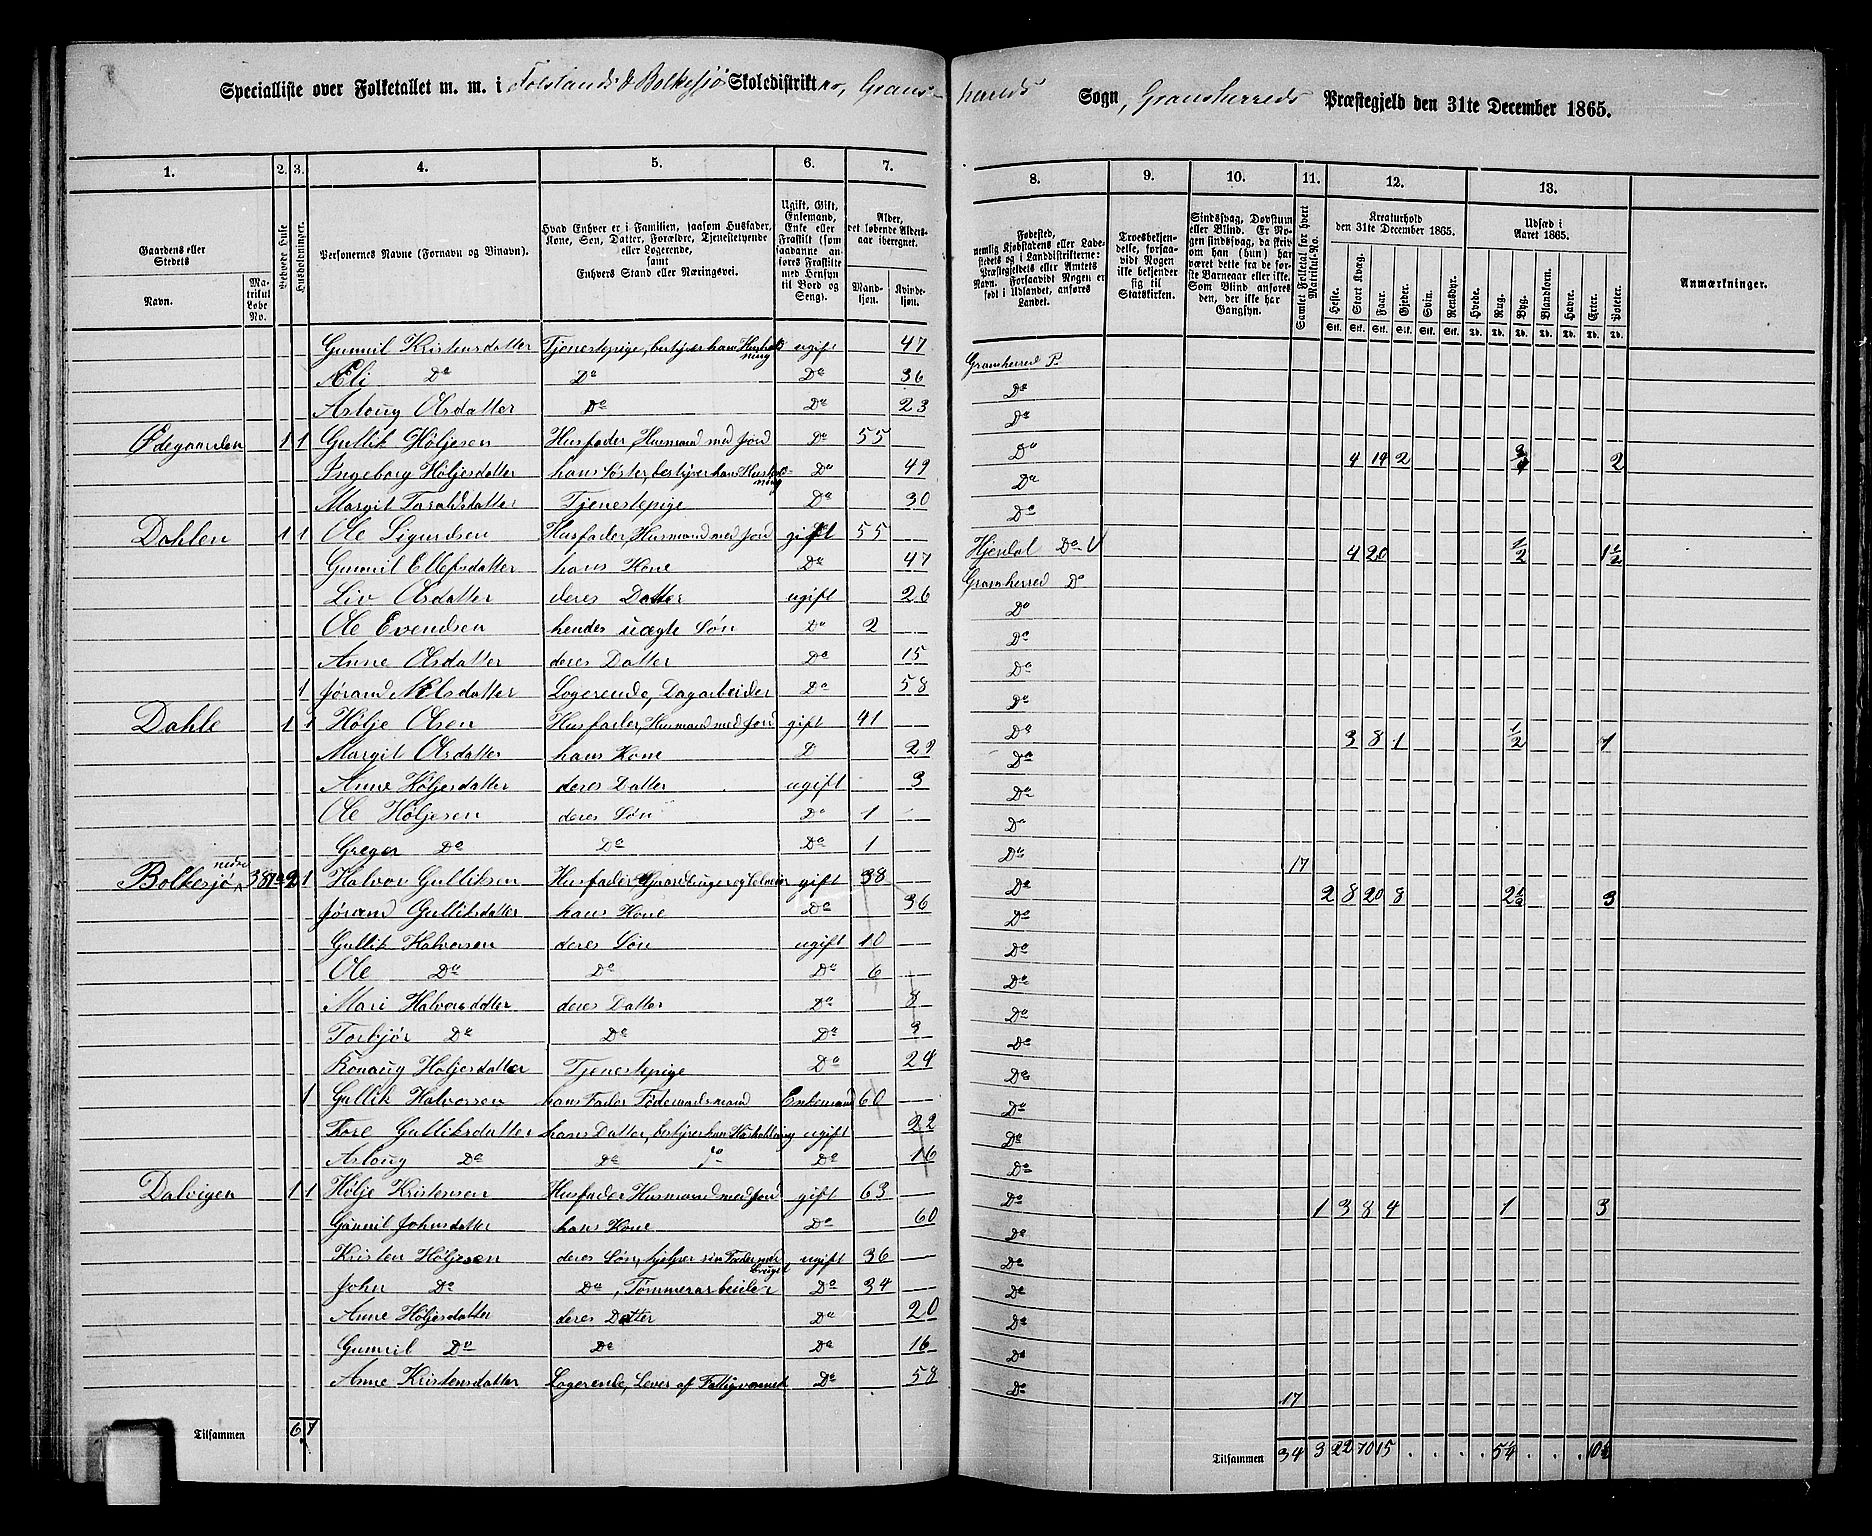 Specialliste over Folketallet m. m. i Folslands & Bolkesjø Skoledistrikter, Grans-
herreds Sogn, Gransherreds Præstegjeld den 31te December 1865.
1. 2. 3. 4. 5. 6. 7. 8. 9. 10. 11. 12. 13.
Gaardens eller Stedets
Navn.
Matrikul Løbe No.
Beboede Huse
Husholdninger.
Personernes Navne (Fornavn og Binavn).
Hvad Enhver er i Familien, saasom Husfader, Kone, Søn, Datter, Forældre, Tjenestetyende eller Logerende, samt Enhvers Stand eller Næringsvei.
Ugift, Gift, Enkemand, Enke eller Fraskilt (som saadanne anføres Fraskilte med Hensyn til Bord og Seng).
Alder, det løbende Aldersaar iberegnet.
Mandkjøn. Kvindekjøn.
Fødested, nemlig Kjøbstadens eller Ladestedets og i Landdistrikterne: Præstegjeldets eller Amtets Navn. Forsaavidt Nogen er født i Udlandet, anføres Landet.
Troesbekjendelse, forsaavidt Nogen ikke bekjender sig til Statskirken.
Sindssvag, Døvstum eller Blind. Er Nogen sindssvag, da skrives om han (hun) har været dette fra de første Barneaar eller ikke. Som Blind anføres den, der ikke har Gangsyn.
Samlet Folketal for hvert Matrikul-No.
Kreaturhold den 31te December 1865.
Heste. Stort Kvæg. Faar. Gjeder. Svin. Rensdyr.
Stk. Stk. Stk. Stk. Stk. Stk.
Udsæd i Aaret 1865.
Hvede. Rug. Byg. Blandkorn. Havre. Erter. Poteter.
Td. Td. Td. Td. Td. Td. Td.
Anmærkninger.
Gunnil Kristensdatter Tjenestepige, bestyrer hans Husholdning ugift 47 Gransherred P.
Eli Do Do Do 36 Do
Aslaug Olsdatter Do Do 23 Do
Ødegaarden 1 1 Gullik Höljesen Husfader, Husmand med Jord Do 55 Do 4 14 2 3/4 2
Ingeborg Höljesdatter hans Søster, bestyrer hans Husholdning Do 49 Do
Margit Taraldsdatter Tjenestepige Do 30 Do
Dahlen 1 1 Ole Sigurdsen Husfader, Husmand med Jord gift 55 Hjerdal Do 4 20 1/2 1 1/2
Gunnil Ellefsdatter hans Kone Do 47 Gransherred Do
Liv Olsdatter deres Datter ugift 26 Do
Ole Evendsen hendes uægte Søn Do 2 Do
Anne Olsdatter deres Datter Do 15 Do
1 Jørand Nilsdatter Logerende, Dagarbeider Do 58 Do
Dahle 1 1 Hölje Olsen Husfader, Husmand med Jord gift 41 Do 3 8 1 1/2 1
Margit Olsdatter hans Kone D 29 Do
Anne Höljesdatter deres Datter ugift 3 Do
Ole Höljesen deres Søn Do 1 Do
Greger Do Do Do 1 Do 17
Bolkesjø nedre 387a 2 1 Halvor Gulliksen Husfader, Gaardbruger og Selveier gift 38 Do 2 8 20 8 2 1/2 3
Jørand Gulliksdatter hans Kone Do 36 Do
Gullik Halvorsen deres Søn ugift 10 Do
Ole Do Do Do 6 Do
Mari Halvorsdatter deres Datter Do 8 Do
Torbjør Do Do Do 3 Do
Ronaug Höljesdatter Tjenestepige Do 24 Do
1 Gullik Halvorsen hans Fader Føderaadsmand Enkemand 60 Do
Tore Gulliksdatter hans Datter, bestyrer hans Husholdning ugift 22 Do
Aslaug Do Do do Do 16 Do
Dalvigen 1 1 Hölje Kristensen Husfader Husmand med Jord gift 63 Do 1 3 8 4 1 3
Gunnil Johnsdatter hans Kone Do 60 Do
Kristen Höljesen deres Søn, hjelper sin Fader med bruget ugift 36 Do
John Do Do, Tømmerarbeider Do 34 Do
Anne Höljesdatter deres Datter Do 20 Do
Gunnil Do Do Do 16 Do
Anne Kristensdatter Logerende, Lever af Fattigvæsnet Do 58 Do 17
Tilsammen 6 7 Tilsammen 34 3 22 70 15 . . . . 5 1/4 . . . 10 1/2